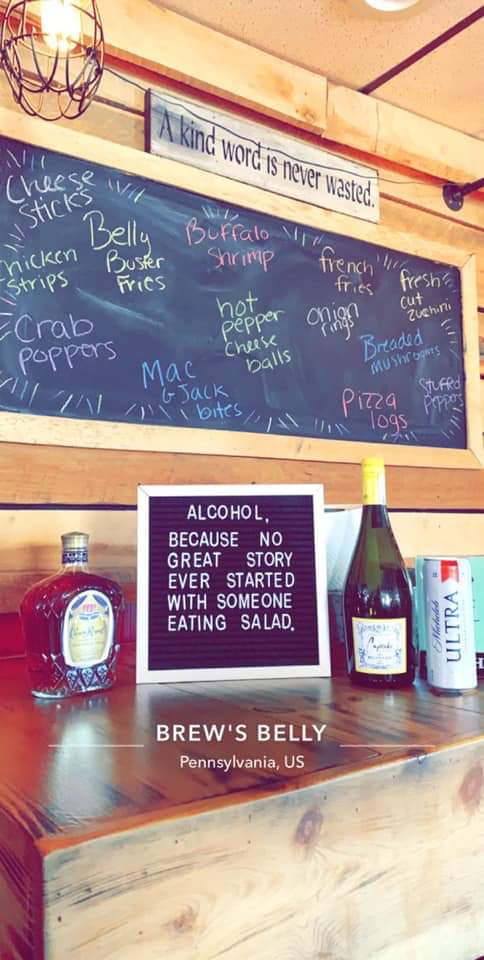 A kind word is never wasted.
Cheese
Sticks
Belly
Buster
Fries
Buffalo
Shrimp
french
fries
fresh
cut
zuchini
hicken
Strips
hot
pepper
cheese
balls
onion
rings
Breaded
mushrooms
Crab
poppers
Mac
& Jack
bites
Pizza
logs
Stuffed
peppers
ALCOHOL,
BECAUSE NO
GREAT STORY
EVER STARTED
WITH SOMEONE
EATING SALAD.
Crown Royal
Cupcake
Michelob
ULTRA
BREW'S BELLY
Pennsylvania, US